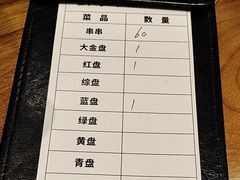 菜品 数量
串串 60
大金盘 1
红盘 1
综盘
蓝盘 1
绿盘
黄盘
青盘